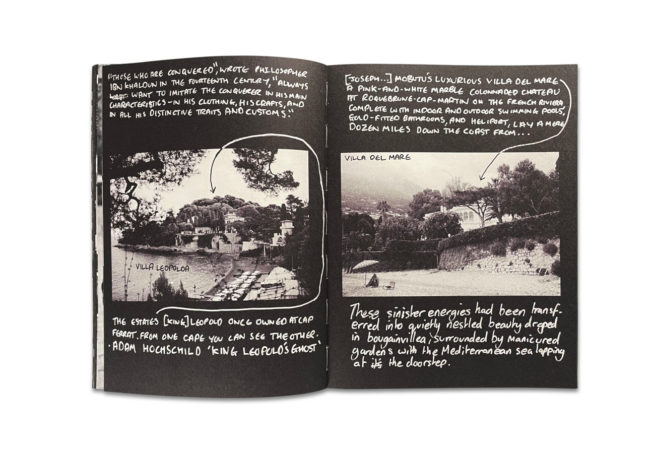 "THOSE WHO ARE CONQUERED", WROTE PHILOSOPHER
IBN KHALDUN IN THE FOURTEENTH CENTURY, "ALWAYS
WANT TO IMITATE THE CONQUERER IN HIS MAIN
CHARACTERISTICS - IN HIS CLOTHING, HIS CRAFTS, AND
IN ALL HIS DISTINCTIVE TRAITS AND CUSTOMS."
VILLA LEOPOLDA
THE ESTATES [KING] LEOPOLD ONCE OWNED AT CAP
FERRAT. FROM ONE CAPE YOU CAN SEE THE OTHER.
- ADAM HOCHSCHILD 'KING LEOPOLD'S GHOST'
[JOSEPH...] MOBUTU'S LUXURIOUS VILLA DEL MARE
A PINK-AND-WHITE MARBLE COLONNADED CHATEAU
AT ROQUEBRUNE-CAP-MARTIN ON THE FRENCH RIVIERA
COMPLETE WITH INDOOR AND OUTDOOR SWIMMING POOLS,
GOLD-FITTED BATHROOMS, AND HELIPORT, LAY A MERE
DOZEN MILES DOWN THE COAST FROM...
VILLA DEL MARE
These sinister energies had been transf-
erred into quietly nestled beauty draped
in bougainvillea, surrounded by manicured
gardens with the Mediterranean sea lapping
at its the doorstep.